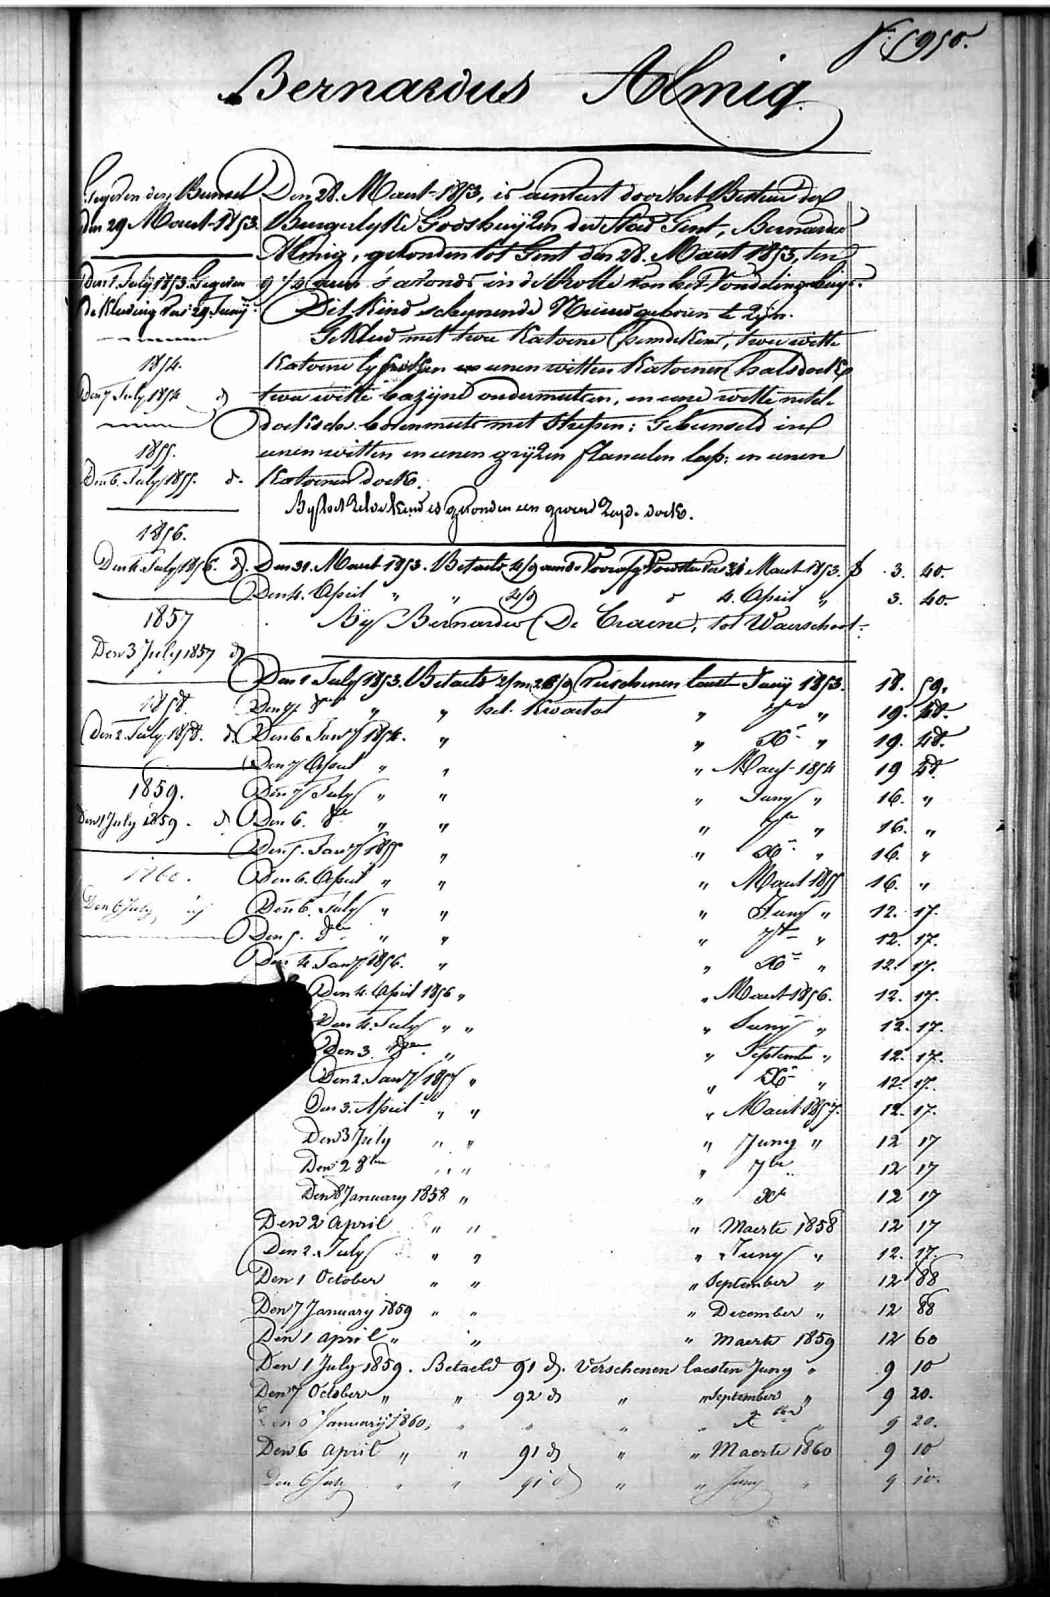 Bernardus Almig
Den 28. Maart 1853, is aenveert door het Bestier der
Burgerlyke Godshuyzen der Stad Gent, Bernardus
Almig, gevonden tot Gent den 28. Maart 1853, ten
9 1/2 uren 's avonds in de Rolle van het Vondelinghuys.
Dit Kind schynende Nieuwgeboren te zyn.
Gekleed met twee Katoene hemdekens, twee witte
Katoene lyfrokken eenen witten Katoenen halsdoek,
twee witte bazyne ondermutsen, en eene witte netel-
doeksche bovenmuts met strepen: Gebunseld in
eenen witten en eenen gryzen flanelen lap: en eenen
Katoenen doek.
By het zelve Kind is gevonden een groene Zyde doek.
Gegeven den Bunsel
den 29 Maart 1853.
Den 1. July 1853. Gegeven
de Kleeding
1854.
Den 7 July 1854 d.
1855.
Den 6. July 1855. d.
1856.
Den 4. July 1856. d.
1857
Den 3 July 1857 d
1858.
Den 2. July 1858. d.
1859.
Den 1 July 1859. d
1860.
Den 6 July
Den 31. Maart 1853. Betaelt aen de 31 Maart 1853. f 3. 40.
Den 4. April " " 4. April " 3. 40.
By Bernardus De Craene, tot Waerschoot.
Den 1 July 1853. Betaelt verschenen laest Juny 1853. 18. 59.
" " het Kwartal " 7ber " 19. 48.
Den 6 Jany 1854. " " Xr " 19. 48.
Den 7 April " " " Maart 1854 19 48.
Den 7 July " " " Juny " 16. "
Den 6. 8ber " " " 7ber " 16. "
Den 5. Jany 1855 " " Xr " 16. "
Den 6. April " " " Maart 1855 16. "
Den 6. July " " " Juny " 12. 17.
Den 5. 8ber " " " 7ber " 12. 17.
Den 4 Jany 1856. " " Xr 12. 17.
Den 4. April 1856 " " Maart 1856. 12. 17.
Den 4. July " " " Juny " 12. 17.
Den 3. 8ber " " September " 12. 17.
Den 2. Jany 1857 " " Xr " 12. 17.
Den 3. April " " " Maart 1857. 12. 17.
Den 3 July " " " Juny " 12 17
Den 2 8ber " " " 7ber " 12 17
Den 8 January 1858 " " Xr 12 17
Den 2 April " " " Maerte 1858 12 17
Den 2. July " " " Juny " 12. 17.
Den 1 October " " " September " 12 88
Den 7 January 1859 " " " December " 12 88
Den 1 april " " " Maerte 1859 12 60
Den 1 July 1859. Betaeld 91 d. Verschenen laesten Juny " 9 10
Den 7 October " " 92 d " " September " 9 20.
January 1860, " " " " 9 20.
Den 6 April " " 91 d " " Maerte 1860 9 10
Den 6 July " " 91 d " " Juny " 9 10.